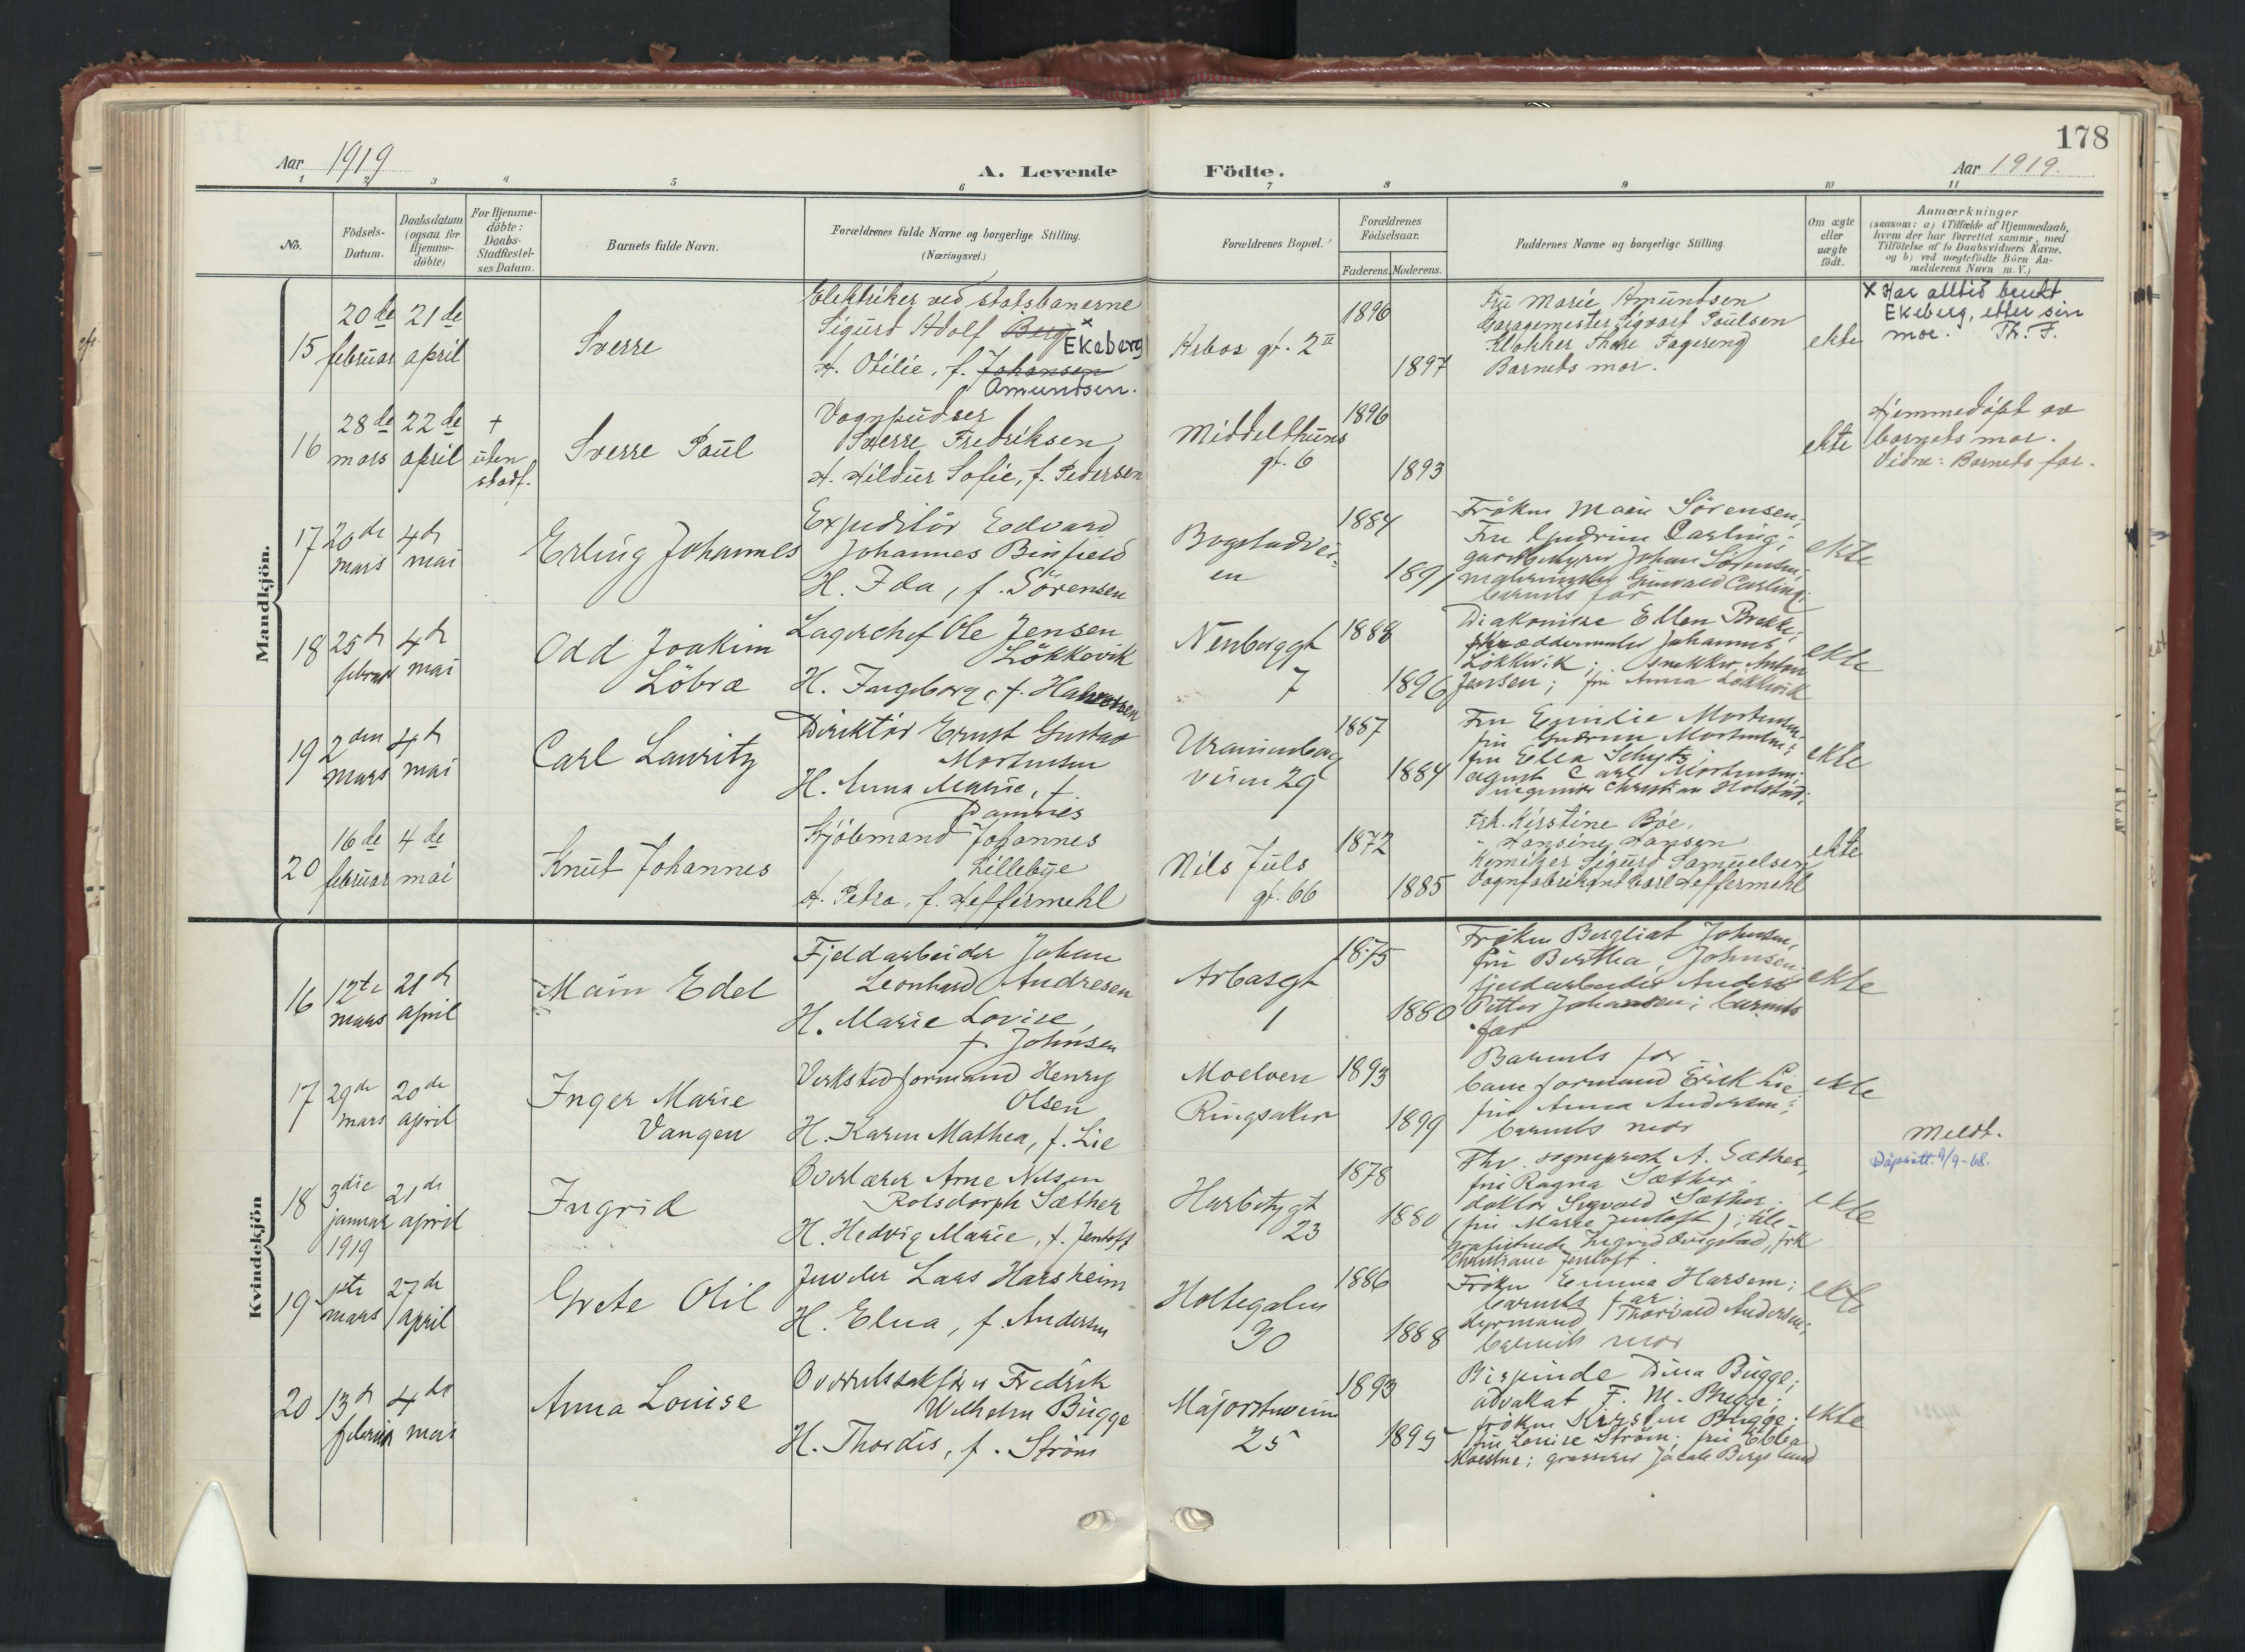 178
Aar 1919
A. Levende Födte.
Aar 1919.
1 2 3 4 5 6 7 8 9 10 11
No.
Födsels-
Datum.
Daabsdatum
(ogsaa for
Hjemme-
döbte)
For Hjemme-
döbte:
Daabs-
Stadfæstel-
ses Datum.
Barnets fulde Navn.
Forældrenes fulde Navne og borgerlige Stilling.
(Næringsvei.)
Forældrenes Bopæl.
Forældrenes
Födselsaar.
Faderens. Moderens.
Faddernes Navne og borgerlige Stilling.
Om ægte
eller
uægte
födt.
Anmærkninger
(saasom: a) i Tilfælde af Hjemmedaab,
hvem der har forrettet samme, med
Tilföielse af to Daabsvidners Navne,
og b) ved uægtefödte Börn An-
melderens Navn m. V.)
Mandkjön.
15
20de
februar
21de
april
Sverre
Elektriker ved statsbanerne
Sigurd Adolf Berg x
Ekeberg
H. Otilie, f. Johansen
Amundsen.
Arbos gt. 2 II
1896
1897
Fru Marie Amundsen
Garagemester Sigvart Paulsen
Klokker Thore Fagereng
Barnets mor.
ekte
x Har alltid brukt
Ekeberg, etter sin
mor. Th. F.
16
28de
mars
22de
april
+
uten
stadf.
Sverre Paul
Vognpudser
Sverre Fredriksen
H. Hildur Sofie, f. Pedersen
Middelthuns
gt. 6
1896
1893
ekte
Hjemmedöpt av
barnets mor.
Vidne: Barnets far.
17
20de
mars
4de
mai
Erling Johannes
Expeditör Edvard
Johannes Binfield
H. Ida, f. Sörensen
Bogstadvei-
en
1884
1891
Fröken Marie Sörensen;
Fru Gudrun Carling;
gardbestyrer Johan Sörensen;
malermester Gunvald Carling;
barnets far
ekte
18
25de
februar
4de
mai
Odd Joakim
Löbræ
Lagerchef Ole Jensen
Lökkevik
H. Ingeborg, f. Halvorsen
Neuberggt
7
1888
1896
Diakonisse Ellen Brekke;
skræddermester Johannes
Lökkevik; snekker Anton
Jensen; fru Anna Lökkevik
ekte
19
2den
mars
4de
mai
Carl Lauritz
Direktör Ernst Gustav
Mortensen
H. Anna Marie, f.
Damnes
Uranienborg
veien 29
1887
1884
Fru Emilie Mortensen
fru Gudrun Mortensen;
fru Ella Schytz;
agent Carl Mortensen;
ingeniör Christian Holstad;
ekte
20
16de
februar
4de
mai
Knut Johannes
Kjöbmand Johannes
Lillebye
H. Petra, f. Heffermehl
Nils Juls
gt. 66
1872
1885
Frk. Kirstine Böe.
" Hansine Hansen
Kemiker Sigurd Samuelsen
Vognfabrikant Carl Heffermehl
ekte
Kvindekjön
16
12te
mars
21de
april
Main Edel
Fjeldarbeider Johan
Leonhard Andresen
H. Marie Lovise,
f. Johnsen
Arbosgt
1
1875
1880
Fröken Bergliot Johnsen,
fru Bertha Johnsen
fjeldarbeider Anders
Petter Johansen; barnets
far
ekte
17
29de
mars
20de
april
Inger Marie
Vangen
Verkstedformand Henry
Olsen
H. Karen Mathea, f. Lie
Moelven
Ringsaker
1893
1899
Barnets far
baneformand Erik Lie
fru Anna Andersen;
barnets mor
ekte
18
3die
januar
1919
21de
april
Ingrid
Overlærer Arne Nilsen
Rolsdorph Sæther
H. Hedvig Marie, f. Jentoft
Harbitzgt
23
1878
1880
Fhv. sogneprest A. Sæther,
fru Ragna Sæther.
doktor Sigvald Sæther.
(fru Marie Jentoft); tele-
grafistinde Ingrid Qvigstad, frk
Christiane Jentoft.
ekte
Meldt.
Dåpsatt. 9/9-68.
19
1ste
mars
27de
april
Grete Olil
Juveler Lars Harsheim
H. Elna, f. Andersen
Holtegaten
30
1886
1888
Fröken Emma Harsem;
barnets far.
styrmand Thorvald Andersen;
barnets mor
ekte
20
13de
februar
4de
mai
Anna Louise
Overretssakförer Fredrik
Wilhelm Bugge
H. Thordis, f. Ström
Majorstuveien
25
1893
1895
Bispinde Dina Bugge;
advokat F. M. Bugge;
fröken Kirsten Bugge;
fru Louise Ström. fru Ebba
Moestue; grosserer Jacob Bergsland
ekte